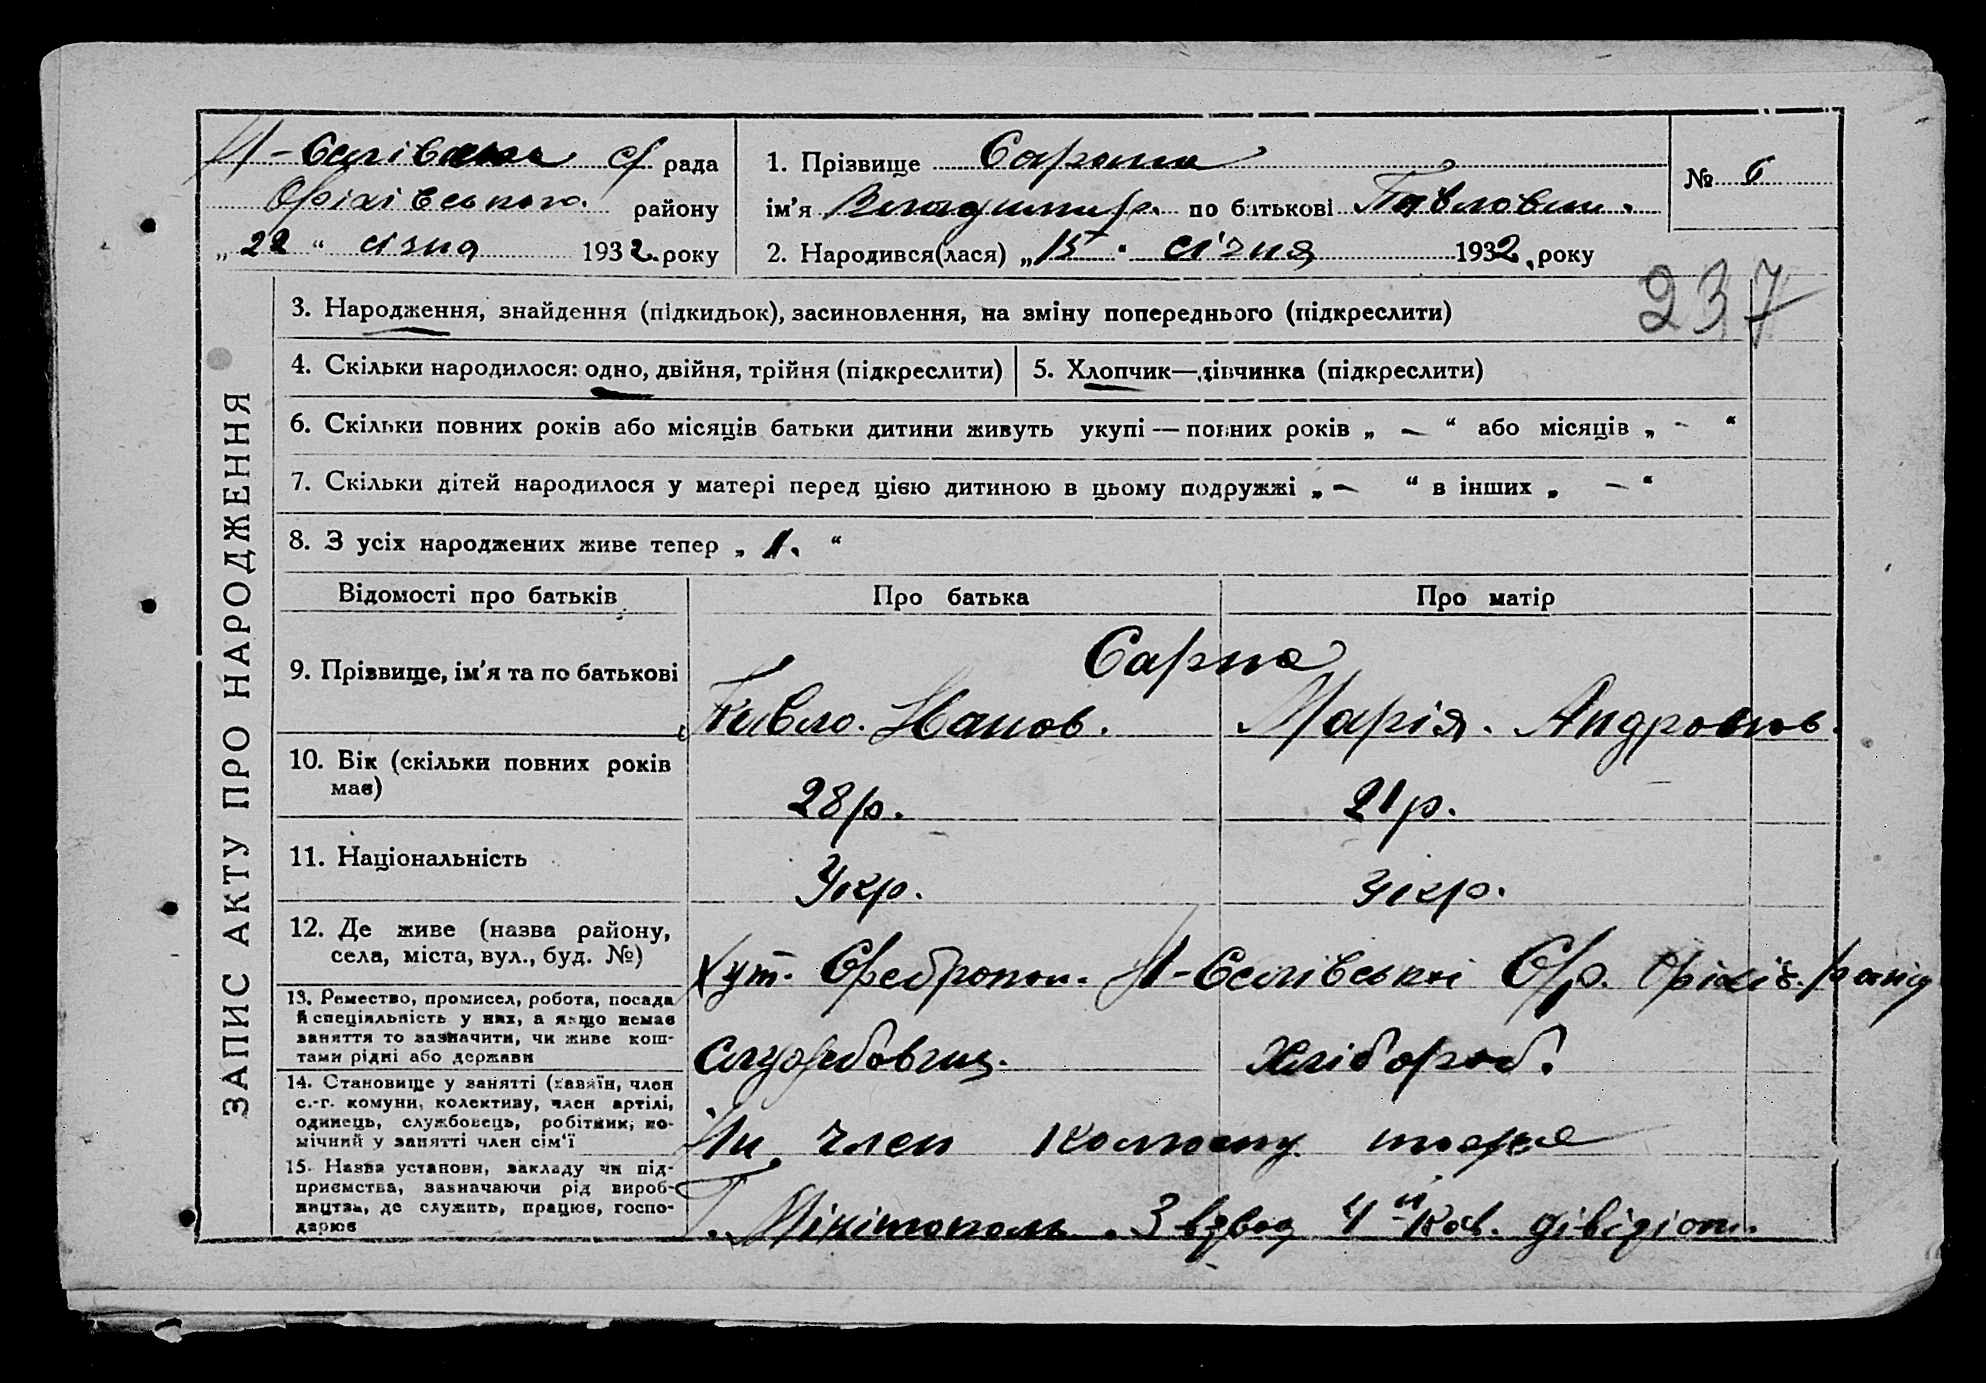 ср рада
Оріхівського району
„22“ січня 1932 року
1. Прізвище
ім’я Владимир. по батькові Павлович.
2. Народився(лася) „15“ січня 1932 року
№ 6
237
ЗАПИС АКТУ ПРО НАРОДЖЕННЯ
3. Народження, знайдення (підкидьок), засиновлення, на зміну попереднього (підкреслити)
4. Скільки народилося: одно, двійня, трійня (підкреслити)
5. Хлопчик—дівчинка (підкреслити)
6. Скільки повних років або місяців батьки дитини живуть укупі — повних років „ — “ або місяців „ - “
7. Скільки дітей народилося у матері перед цією дитиною в цьому подружжі „ — “ в інших „ — “
8. З усіх народжених живе тепер „ 1. “
Відомості про батьків Про батька Про матір
9. Прізвище, ім’я та по батькові
Павло. Иванов. Марія.
10. Вік (скільки повних років
має)
28р. 21р.
11. Національність
Укр. Укр.
12. Де живе (назва району,
села, міста, вул., буд. №)
Хут. С/р. Оріхів.
13. Ремество, промисел, робота, посада
й спеціяльність у них, а якщо немає
заняття то зазначити, чи живе кош-
тами рідні або держави
Службовец. Хлібороб.
14. Становище у занятті (хазяїн, член
с.-г. комуни, колективу, член артілі,
одинець, службовець, робітник, по-
мічний у занятті член сім’ї
член
15. Назва установи, закладу чи під-
приємства, зазначаючи рід вироб-
ництва, де служить, працює, госпо-
дарює
Г. 3 взвод 4й Кав. дівізіон.